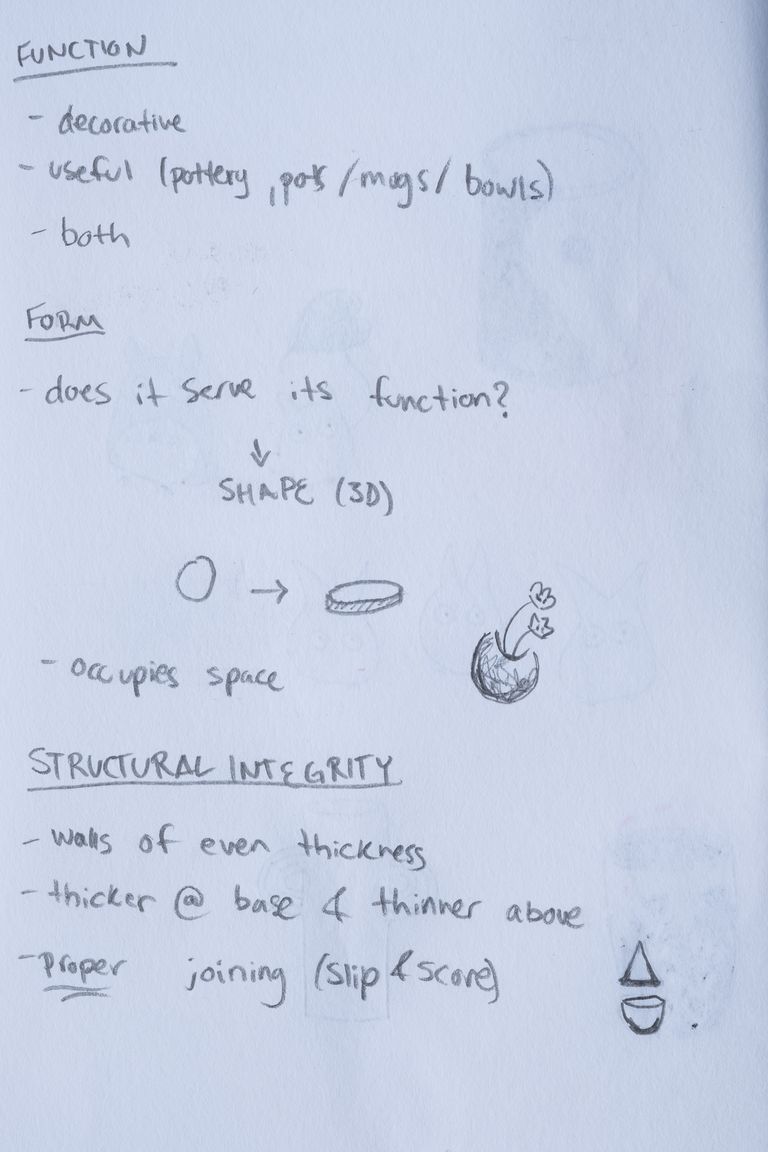 FUNCTION
- decorative
- useful (pottery, pots / mugs / bowls)
- both
FORM
- does it serve its function?
↓
SHAPE (3D)
→
- occupies space
STRUCTURAL INTEGRITY
- walls of even thickness
- thicker @ base & thinner above
- Proper joining (slip & score)